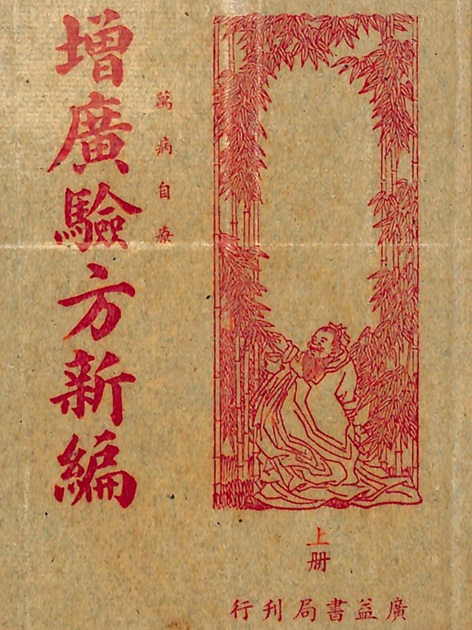 萬病自療
增廣驗方新編
上册
廣益書局刊行